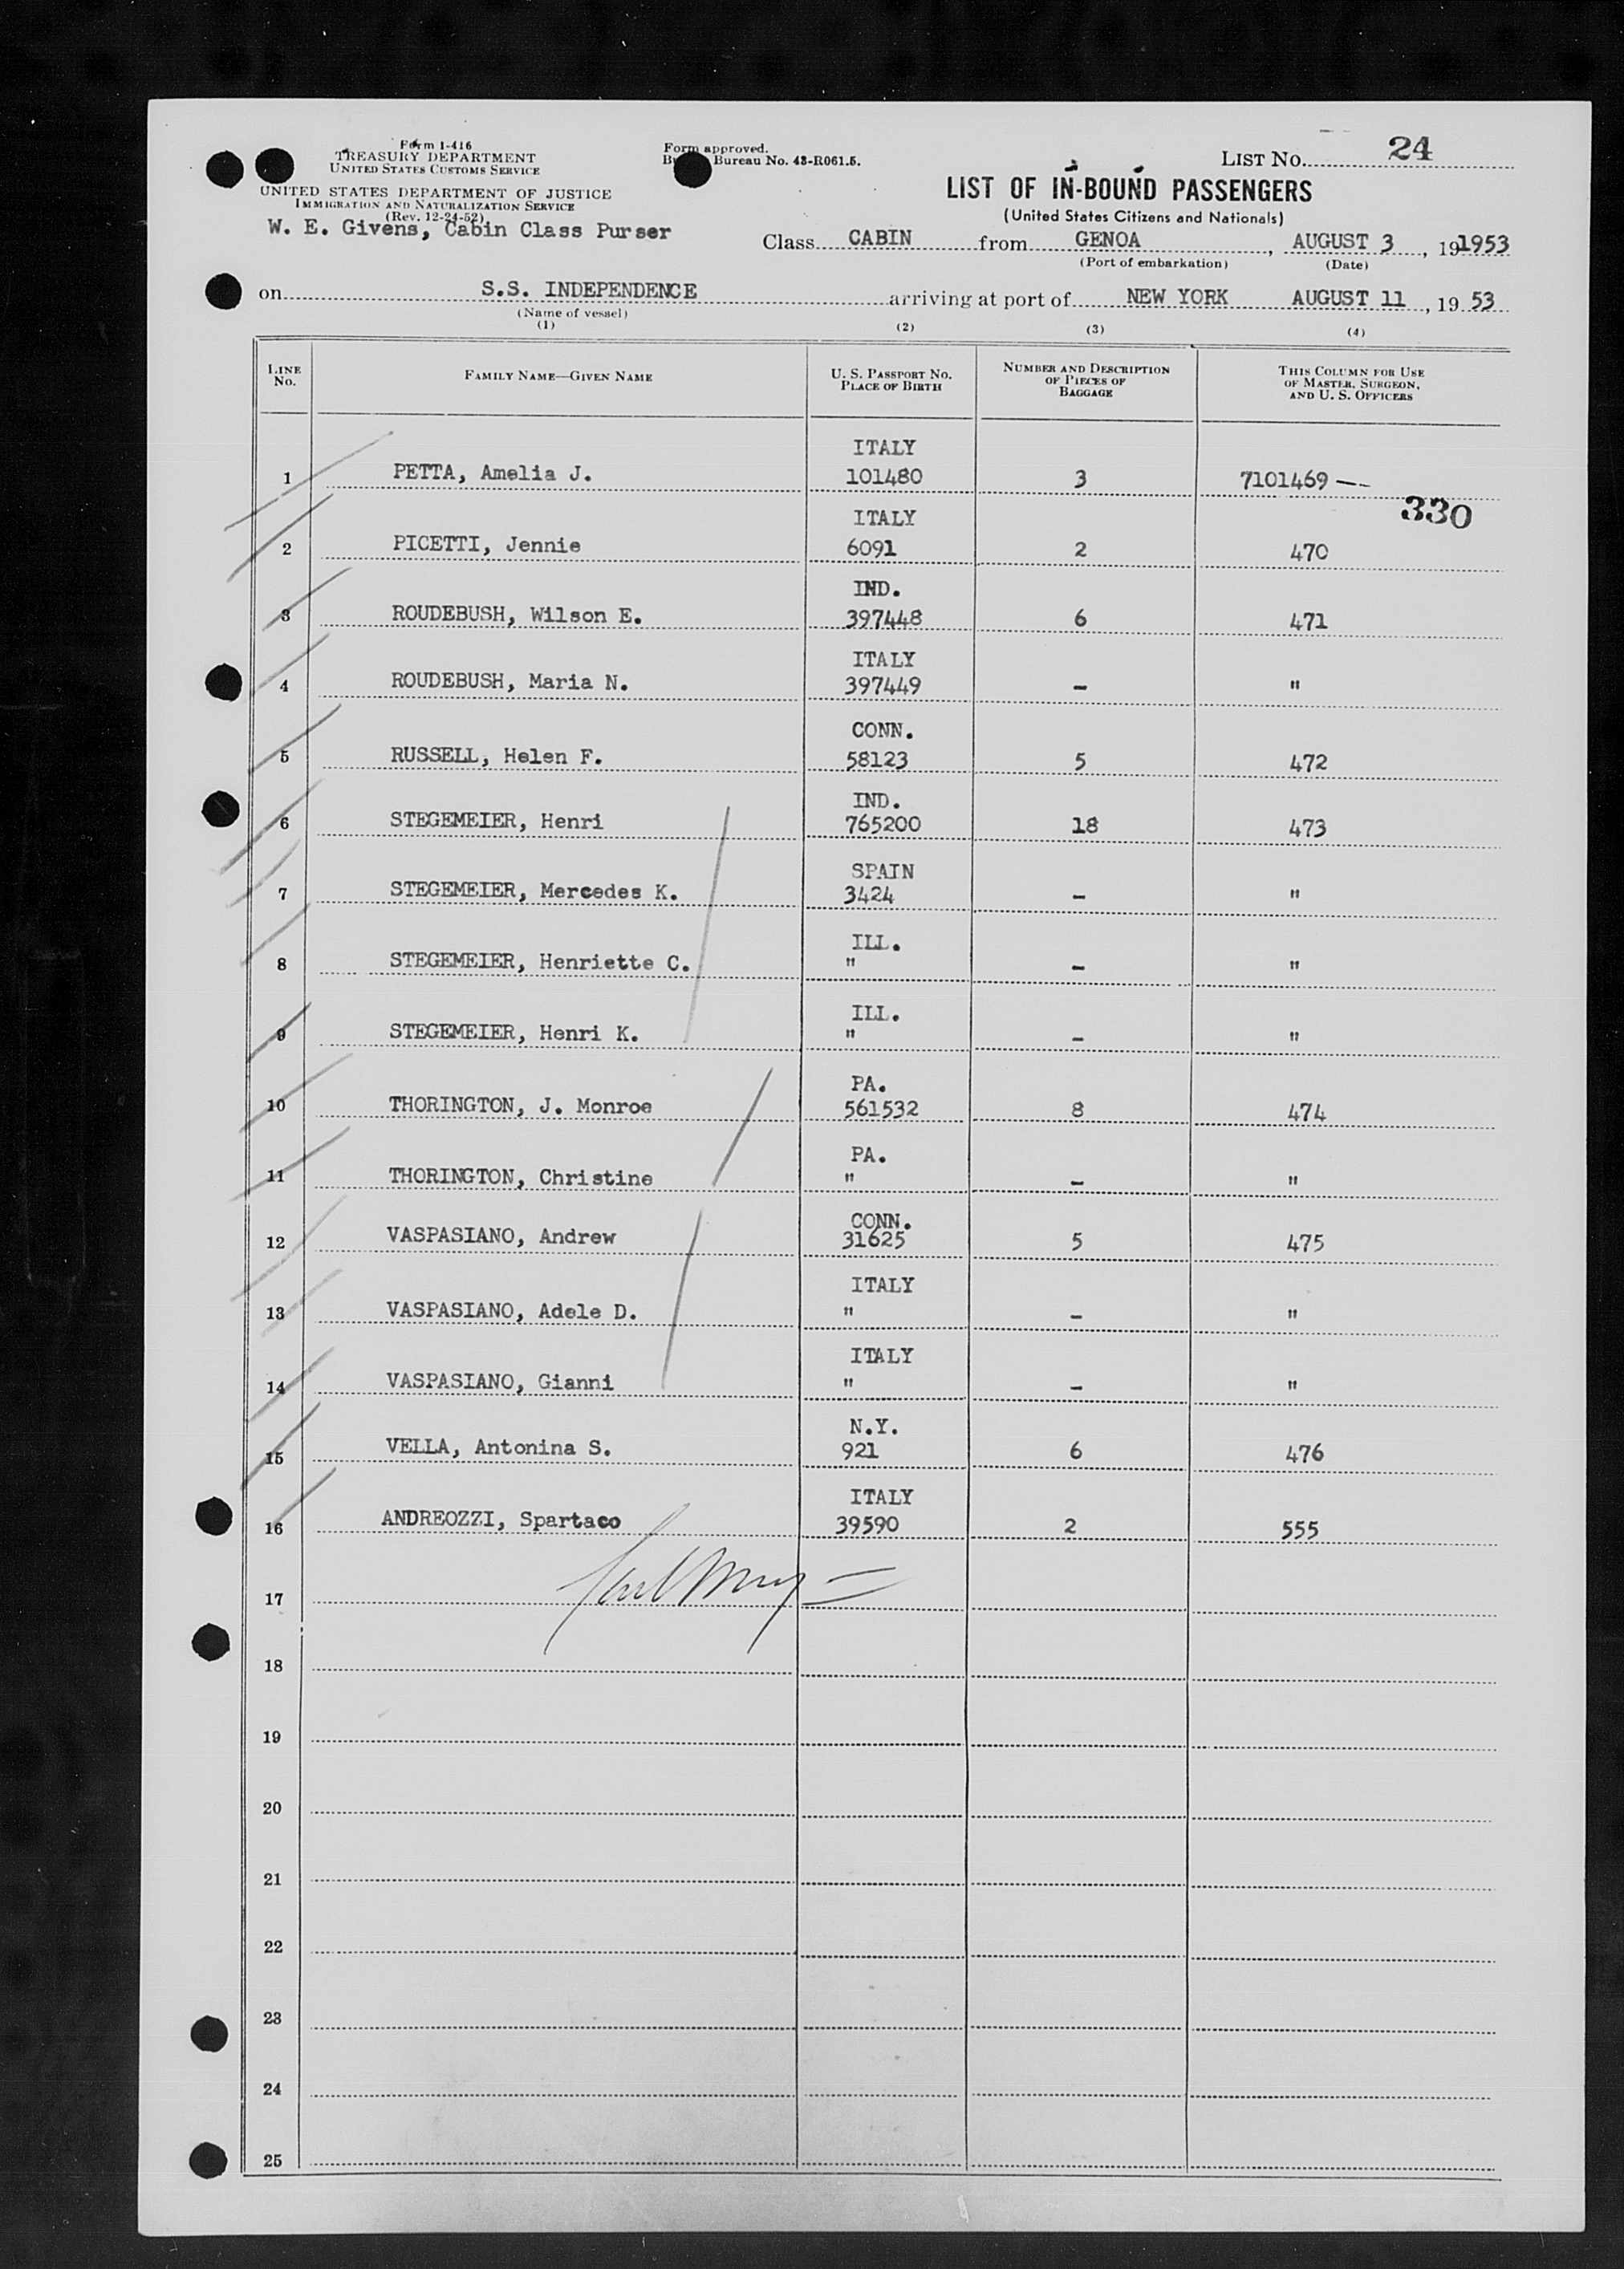 Form I-416
TREASURY DEPARTMENT
UNITED STATES CUSTOMS SERVICE
UNITED STATES DEPARTMENT OF JUSTICE
IMMIGRATION AND NATURALIZATION SERVICE
(Rev. 12-24-52)
W. E. Givens, Cabin Class Purser
Form approved.
Bureau No. 43-R061.5.
LIST No. 24
LIST OF IN-BOUND PASSENGERS
(United States Citizens and Nationals)
Class CABIN from GENOA, AUGUST 3, 191953
(Port of embarkation) (Date)
on S.S. INDEPENDENCE arriving at port of NEW YORK AUGUST 11, 19 53
(Name of vessel)
(1) (2) (3) (4)
LINE No. FAMILY NAME—GIVEN NAME U. S. PASSPORT No. PLACE OF BIRTH NUMBER AND DESCRIPTION OF PIECES OF BAGGAGE THIS COLUMN FOR USE OF MASTER, SURGEON, AND U. S. OFFICERS
ITALY
1 PETTA, Amelia J. 101480 3 7101469 ---
330
ITALY
2 PICETTI, Jennie 6091 2 470
IND.
3 ROUDEBUSH, Wilson E. 397448 6 471
ITALY
4 ROUDEBUSH, Maria N. 397449 - "
CONN.
5 RUSSELL, Helen F. 58123 5 472
IND.
6 STEGEMEIER, Henri 765200 18 473
SPAIN
7 STEGEMEIER, Mercedes K. 3424 - "
ILL.
8 STEGEMEIER, Henriette C. " - "
ILL.
9 STEGEMEIER, Henri K. " - "
PA.
10 THORINGTON, J. Monroe 561532 8 474
PA.
11 THORINGTON, Christine " - "
CONN.
12 VASPASIANO, Andrew 31625 5 475
ITALY
13 VASPASIANO, Adele D. " - "
ITALY
14 VASPASIANO, Gianni " - "
N.Y.
15 VELLA, Antonina S. 921 6 476
ITALY
16 ANDREOZZI, Spartaco 39590 2 555
17
18
19
20
21
22
23
24
25